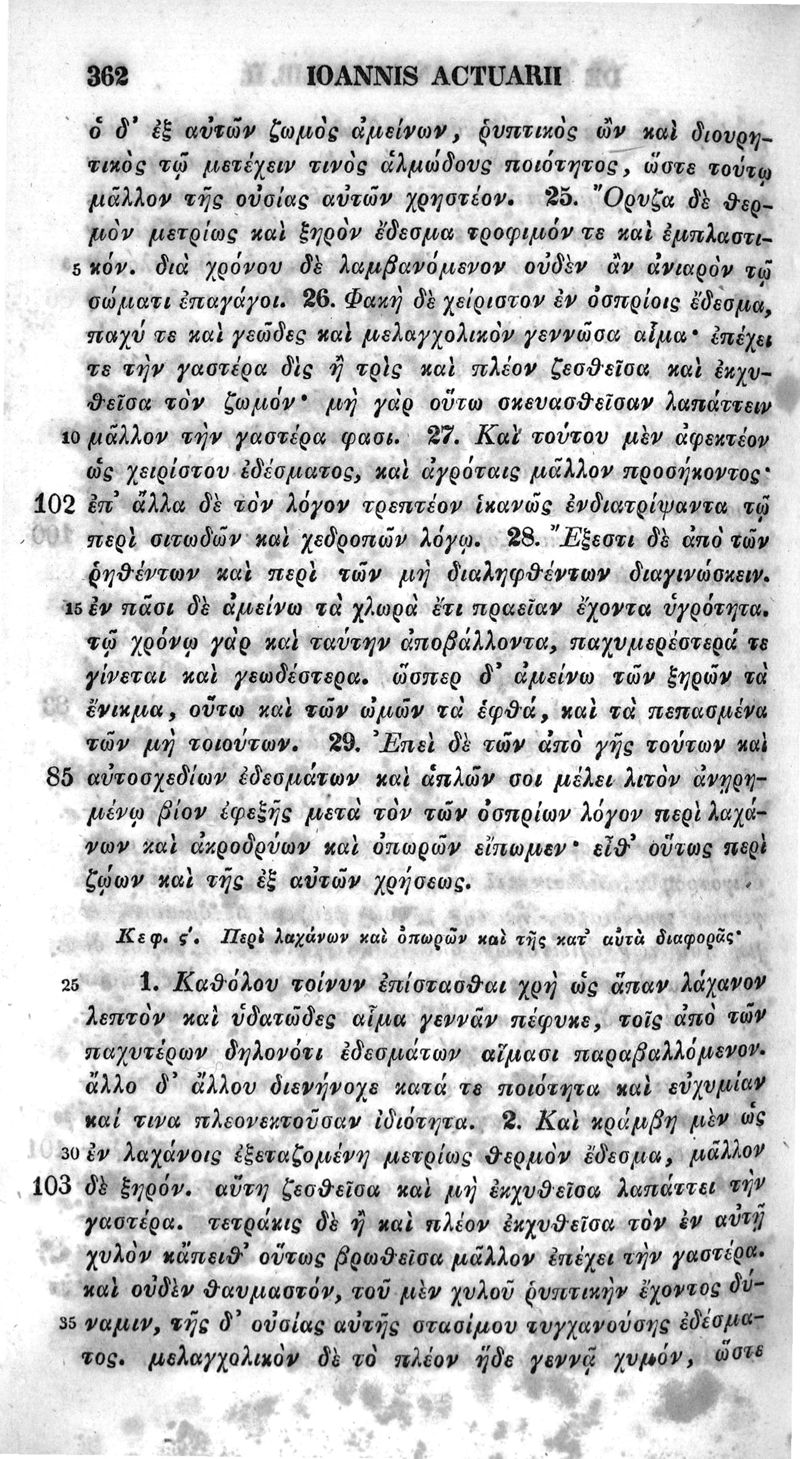 362 IOANNIS ACTUARII
ὁ δ’ ἐξ αὐτῶν ζωμὸς ἀμείνων, ῥυπτικὸς ὢν καὶ διουρη-
τικὸς τῷ μετέχειν τινὸς ἁλμώδους ποιότητος, ὥστε τούτῳ
μᾶλλον τῆς οὐσίας αὐτῶν χρηστέον. 25. Ὄρυζα δὲ θερ-
μὸν μετρίως καὶ ξηρὸν ἔδεσμα τροφιμόν τε καὶ ἐμπλαστι-
5 κόν. διὰ χρόνου δὲ λαμβανόμενον οὐδὲν ἂν ἀνιαρὸν τῷ
σώματι ἐπαγάγοι. 26. Φακῆ δὲ χείριστον ἐν ὀσπρίοις ἔδεσμα,
παχύ τε καὶ γεῶδες καὶ μελαγχολικὸν γεννῶσα αἷμα· ἐπέχει
τε τὴν γαστέρα δὶς ἢ τρὶς καὶ πλέον ζεσθεῖσα καὶ ἐκχυ-
θεῖσα τὸν ζωμόν· μὴ γὰρ οὕτω σκευασθεῖσαν λαπάττειν
10 μᾶλλον τὴν γαστέρα φασι. 27. Καὶ τούτου μὲν ἀφεκτέον
ὡς χειρίστου ἐδέσματος, καὶ ἀγρόταις μᾶλλον προσήκοντος·
102 ἐπ’ ἄλλα δὲ τὸν λόγον τρεπτέον ἱκανῶς ἐνδιατρίψαντα τῷ
περὶ σιτωδῶν καὶ χεδροπῶν λόγῳ. 28. Ἔξεστι δὲ ἀπὸ τῶν
ῥηθέντων καὶ περὶ τῶν μὴ διαληφθέντων διαγινώσκειν.
15 ἐν πᾶσι δὲ ἀμείνω τὰ χλωρὰ ἔτι πραεῖαν ἔχοντα ὑγρότητα.
τῷ χρόνῳ γὰρ καὶ ταύτην ἀποβάλλοντα, παχυμερέστερά τε
γίνεται καὶ γεωδέστερα. ὥσπερ δ’ ἀμείνω τῶν ξηρῶν τὰ
ἔνικμα, οὕτω καὶ τῶν ὠμῶν τὰ ἑφθά, καὶ τὰ πεπασμένα
τῶν μὴ τοιούτων. 29. Ἐπεὶ δὲ τῶν ἀπὸ γῆς τούτων καὶ
85 αὐτοσχεδίων ἐδεσμάτων καὶ ἁπλῶν σοι μέλει λιτὸν ἀνῃρη-
μένῳ βίον ἐφεξῆς μετὰ τὸν τῶν ὀσπρίων λόγον περὶ λαχά-
νων καὶ ἀκροδρύων καὶ ὀπωρῶν εἴπωμεν· εἶθ’ οὕτως περὶ
ζῴων καὶ τῆς ἐξ αὐτῶν χρήσεως.
Κεφ. ϛʹ. Περὶ λαχάνων καὶ ὀπωρῶν καὶ τῆς κατ’ αὐτὰ διαφορᾶς·
25 1. Καθόλου τοίνυν ἐπίστασθαι χρὴ ὡς ἅπαν λάχανον
λεπτὸν καὶ ὑδατῶδες αἷμα γεννᾶν πέφυκε, τοῖς ἀπὸ τῶν
παχυτέρων δηλονότι ἐδεσμάτων αἵμασι παραβαλλόμενον.
ἄλλο δ’ ἄλλου διενήνοχε κατά τε ποιότητα καὶ εὐχυμίαν
καί τινα πλεονεκτοῦσαν ἰδιότητα. 2. Καὶ κράμβη μὲν ὡς
30 ἐν λαχάνοις ἐξεταζομένη μετρίως θερμὸν ἔδεσμα, μᾶλλον
103 δὲ ξηρόν. αὕτη ζεσθεῖσα καὶ μὴ ἐκχυθεῖσα λαπάττει τὴν
γαστέρα. τετράκις δὲ ἢ καὶ πλέον ἐκχυθεῖσα τὸν ἐν αὐτῇ
χυλὸν κἄπειθ’ οὕτως βρωθεῖσα μᾶλλον ἐπέχει τὴν γαστέρα.
καὶ οὐδὲν θαυμαστόν, τοῦ μὲν χυλοῦ ῥυπτικὴν ἔχοντος δύ-
35 ναμιν, τῆς δ’ οὐσίας αὐτῆς στασίμου τυγχανούσης ἐδέσμα-
τος. μελαγχολικὸν δὲ τὸ πλέον ἥδε γεννᾷ χυμόν, ὥστε